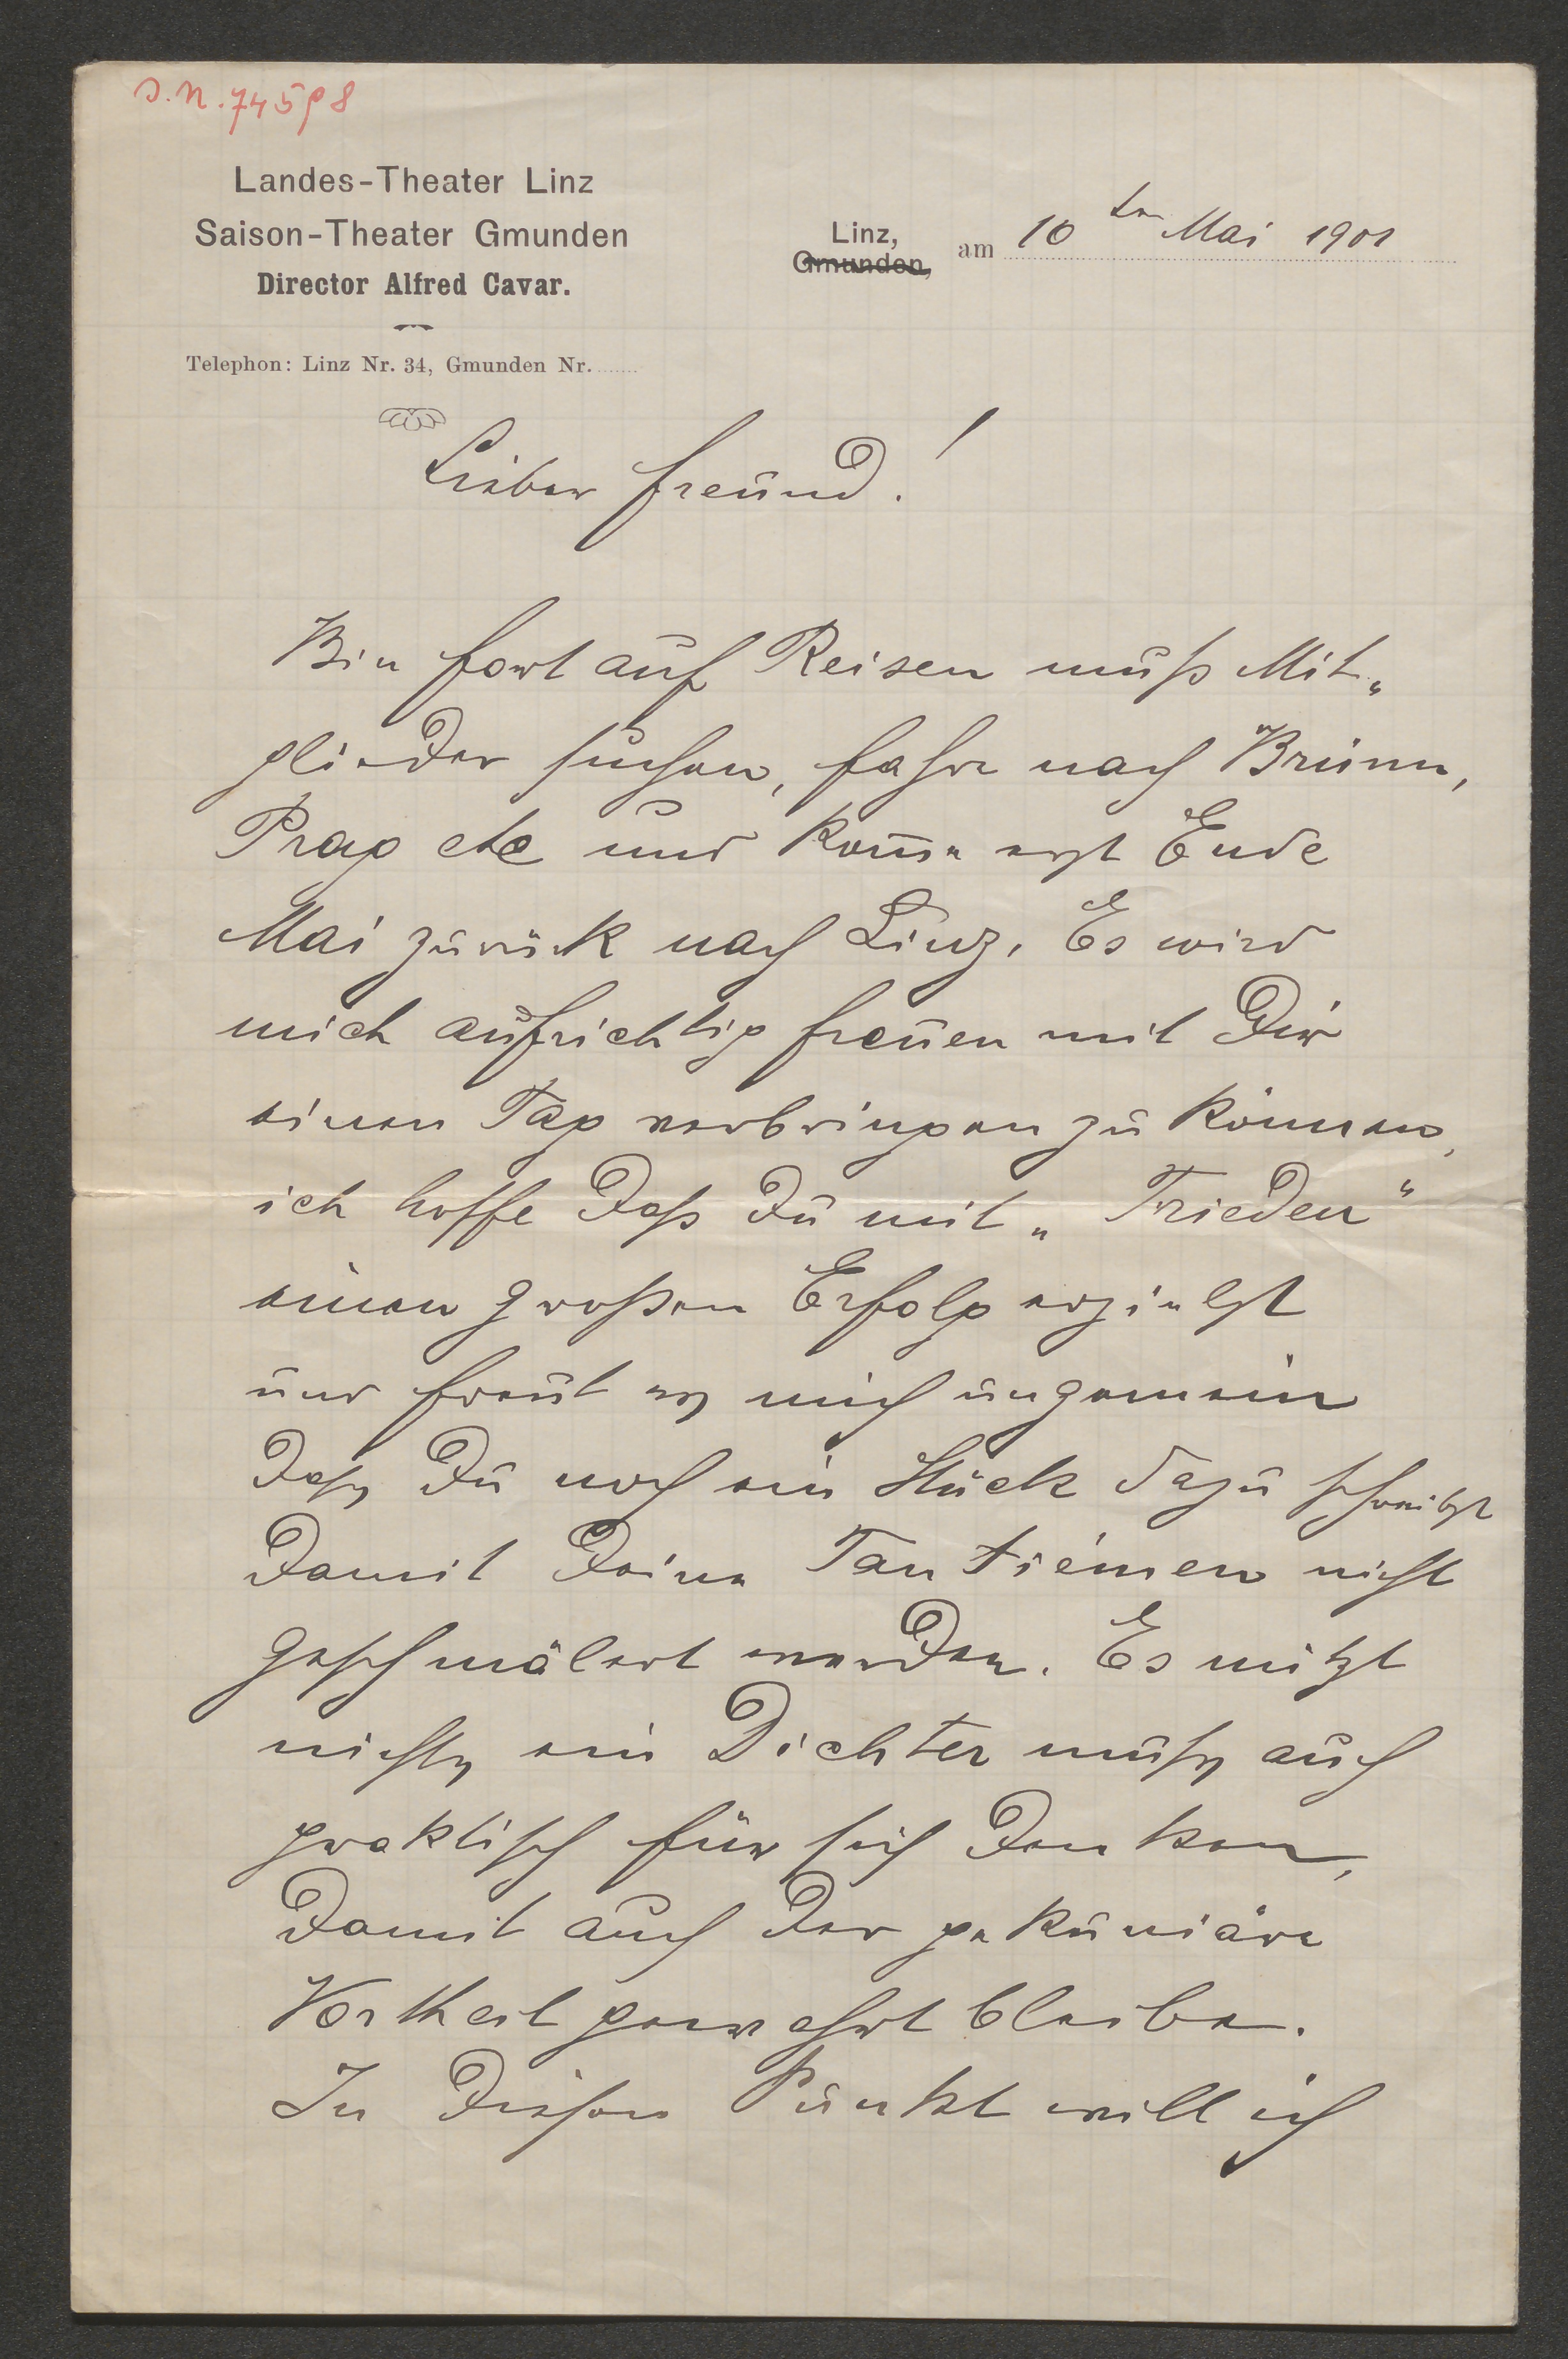 J.N. 74598
Landes-Theater Linz
Saison-Theater Gmunden
Director Alfred Cavar.
Telephon: Linz Nr. 34, Gmunden Nr.
Linz,
Gmunden,
am 10ten Mai 1901
Lieber Freund!
Bin fort auf Reisen muß Mit„
glieder suchen, fahre nach Brünn,
Prag etc und kom̅e erst Ende
Mai zurück nach Linz. Es wird
mich aufrichtig freuen mit Dir
einen Tag verbringen zu können,
ich hoffe daß Du mit „Frieden“
einen großen Erfolg erzielst
und freut es mich ungemein
daß Du noch ein Stück dazu schreibst
damit Deine Tantiémen nicht
geschmälert werden. Es nützt
nichts ein Dichter muß auch
praktisch für sich denken,
damit auch der pekuniäre
Vortheil gewahrt bleibe.
In diesem Punkt will ich